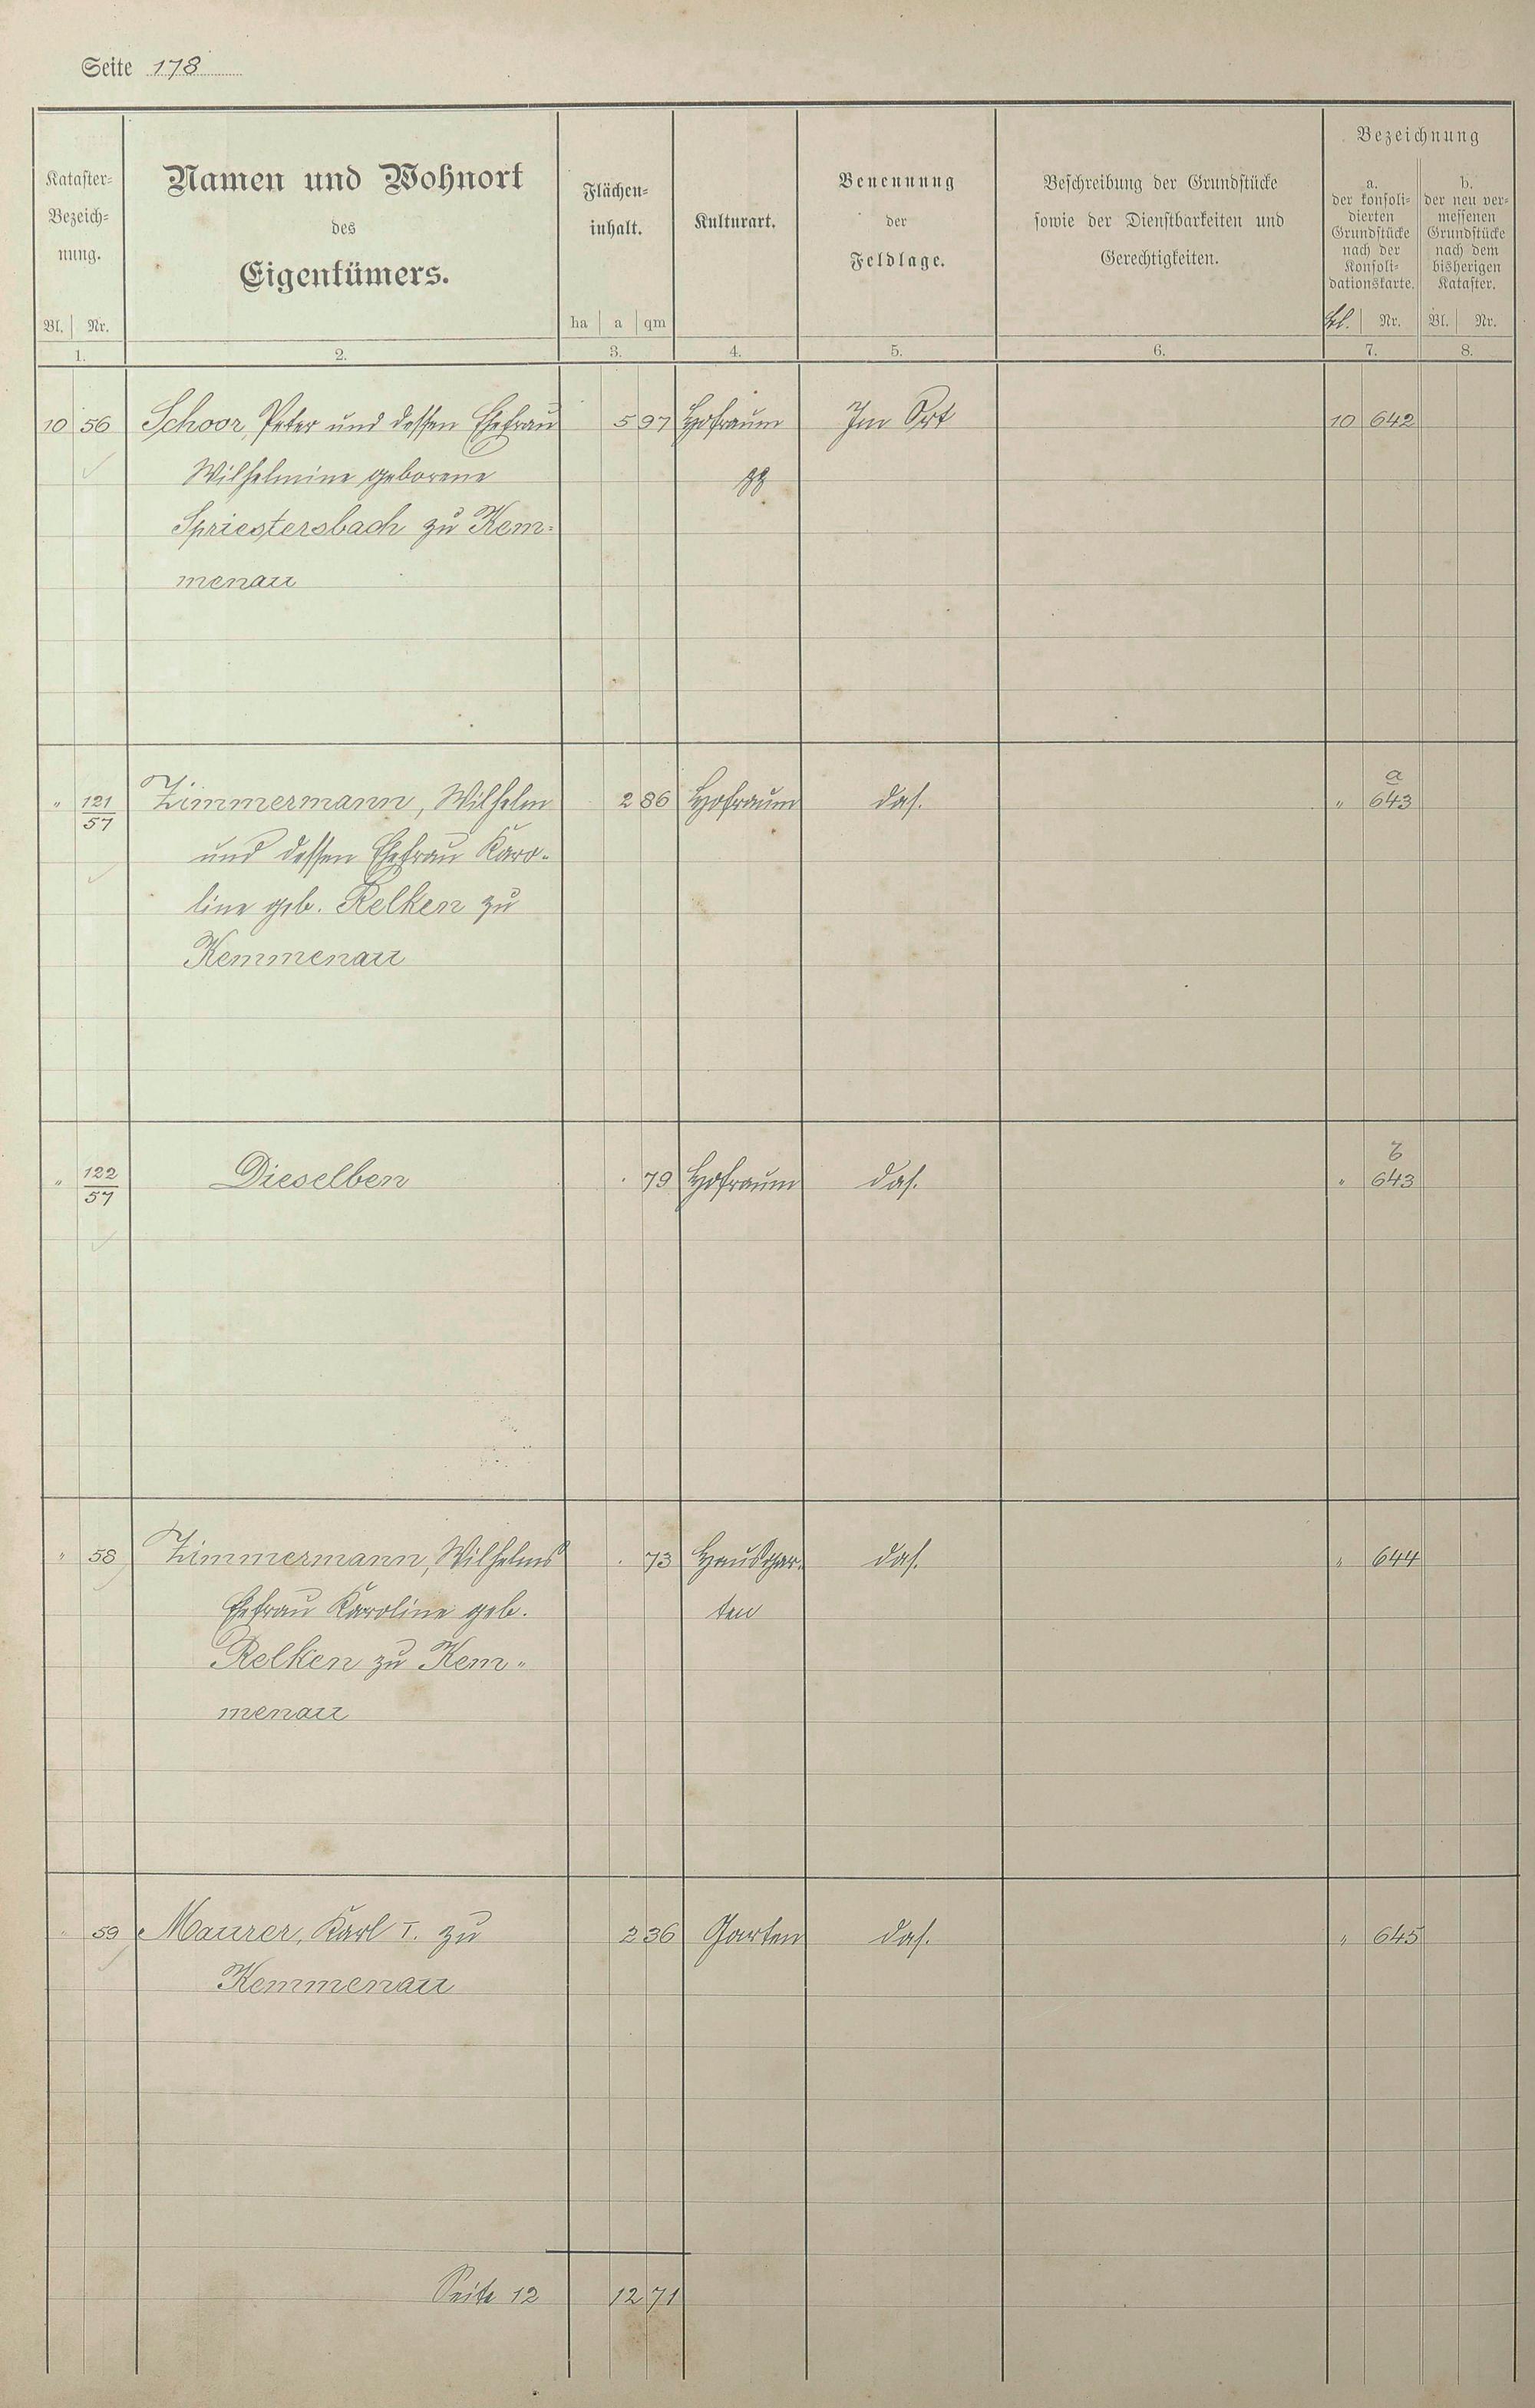 Seite 178
Kataster-
Bezeich-
nung.
Bl. Nr.
1.
Namen und Wohnort
des
Eigentümers.
2.
Flächen-
inhalt.
ha a qm
3.
Kulturart.
4.
Benennung
der
Feldlage.
5.
Beschreibung der Grundstücke
sowie der Dienstbarkeiten und
Gerechtigkeiten.
6.
Bezeichnung
a.
der konsoli-
dierten
Grundstücke
nach der
Konsoli-
dationskarte.
Bl. Nr.
7.
b.
der neu ver-
messenen
Grundstücke
nach dem
bisherigen
Kataster.
Bl. Nr.
8.
10 56 Schoor, Peter und dessen Ehefrau 5 97 Hofraum Im Ort 10 642
Wilhelmine geborene
Spriestersbach zu Kem-
menau
" 121/57 Zimmermann, Wilhelm 2 86 Hofraum das. " a 643
und dessen Ehefrau Karo-
line geb. Relken zu
Kemmenau
" 122/57 Dieselben . 79 Hofraum das. " b 643
" 58 Zimmermann, Wilhelms . 73 Hausgar- das. " 644
Ehefrau Karoline geb. ten
Relken zu Kem-
menau
" 59 Maurer, Karl I. zu 2 36 Garten das. " 645
Kemmenau
Seite 12 12 71